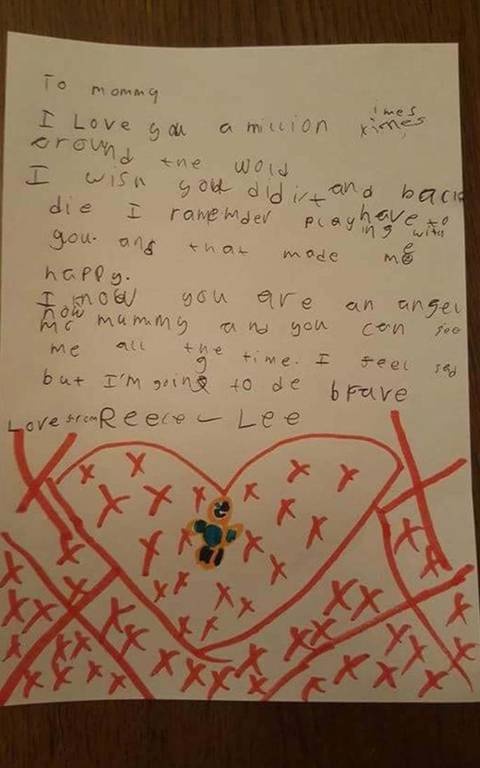 To mommy
I Love you a million times ximes
around the wold
I wish you didn't and back
die I ramemder playing have to with
you. and that made me
happy.
I know you are an angel
now mummy and you can see
me all the time. I feel sad
but I'm going to de brave
Love from Reece - Lee